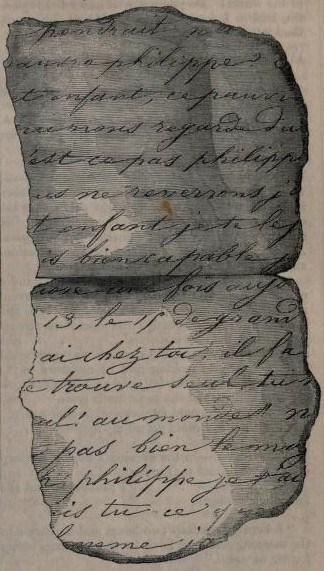 pondrait n
pauvre philippe?
t enfant, ce pauvr
qui nous regarde du
'est ce pas philippe
us ne reverrons j
t enfant je te le j
is bien capable j
une fois auj
13, le 15 de grand
ai chez toi, il fa
e trouve seul, tu
ul! au monde! n
pas bien le
philippe je t'ai
is tu ce que
même j